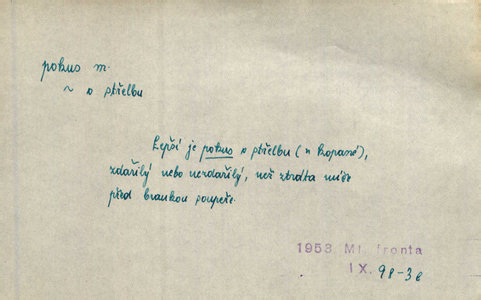 pokus m.
~ o střelbu
Lepší je pokus o střelbu (v kopané),
zdařilý nebo nezdařilý, než ztráta míče
před brankou soupeře.
1953 Ml. fronta
IX. 98-3